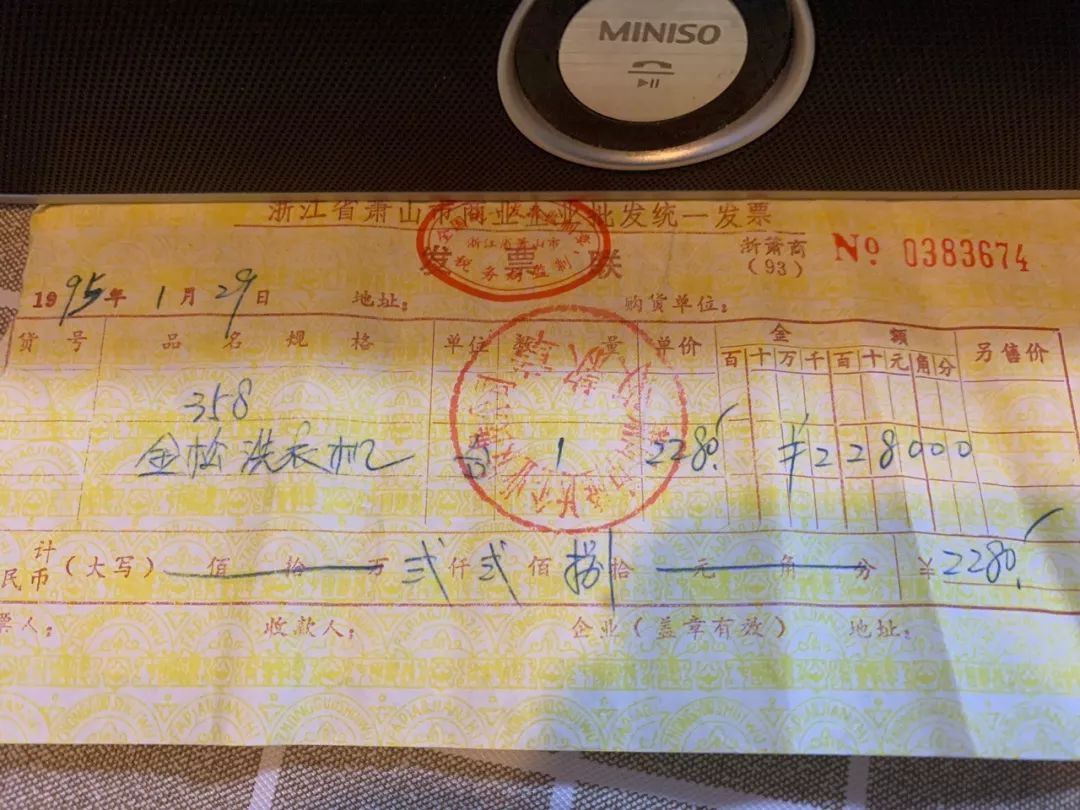 MINISO
浙江省萧山市商业企业批发统一发票
浙江省萧山市
税务局监制
发票联
浙萧商
(93)
No 0383674
1995年1月29日 地址: 购货单位:
货号 品名规格 单位 数量 单价 金额 另售价
百十万千百十元角分
358
金松洗衣机 台 1 2280. ¥228000
计
民币(大写) 佰 拾 万 弍仟弍佰捌拾 元 角 分 ¥2280.
票人: 收款人: 企业(盖章有效) 地址: